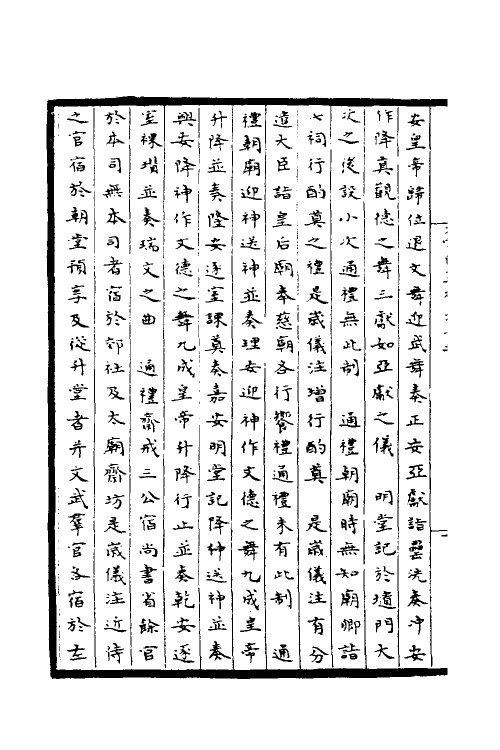 安皇帝歸位退文舞迎武舞奏正安亞獻詣罍洗奏冲安
作降真觀德之舞三獻如亞獻之儀　明堂記於壝門大
次之後設小次通禮無此制　通禮朝廟時無知廟卿詣
七祠行酌奠之禮是歲儀注增行酌奠　是歲儀注有分
遣大臣詣皇后廟奉慈廟各行饗禮通禮未有此制　通
禮朝廟迎神送神並奏理安迎神作文德之舞九成皇帝
升降並奏隆安逐室祼奠奏嘉安明堂記降神送神並奏
興安降神作文德之舞九成皇帝升降行止並奏乾安逐
室祼瓚並奏瑞文之曲　通禮齋戒三公宿尚書省餘官
於本司無本司者宿於郊社及太廟齋坊是歲儀注近侍
之官宿於朝堂預享及從升堂者并文武羣官各宿於左